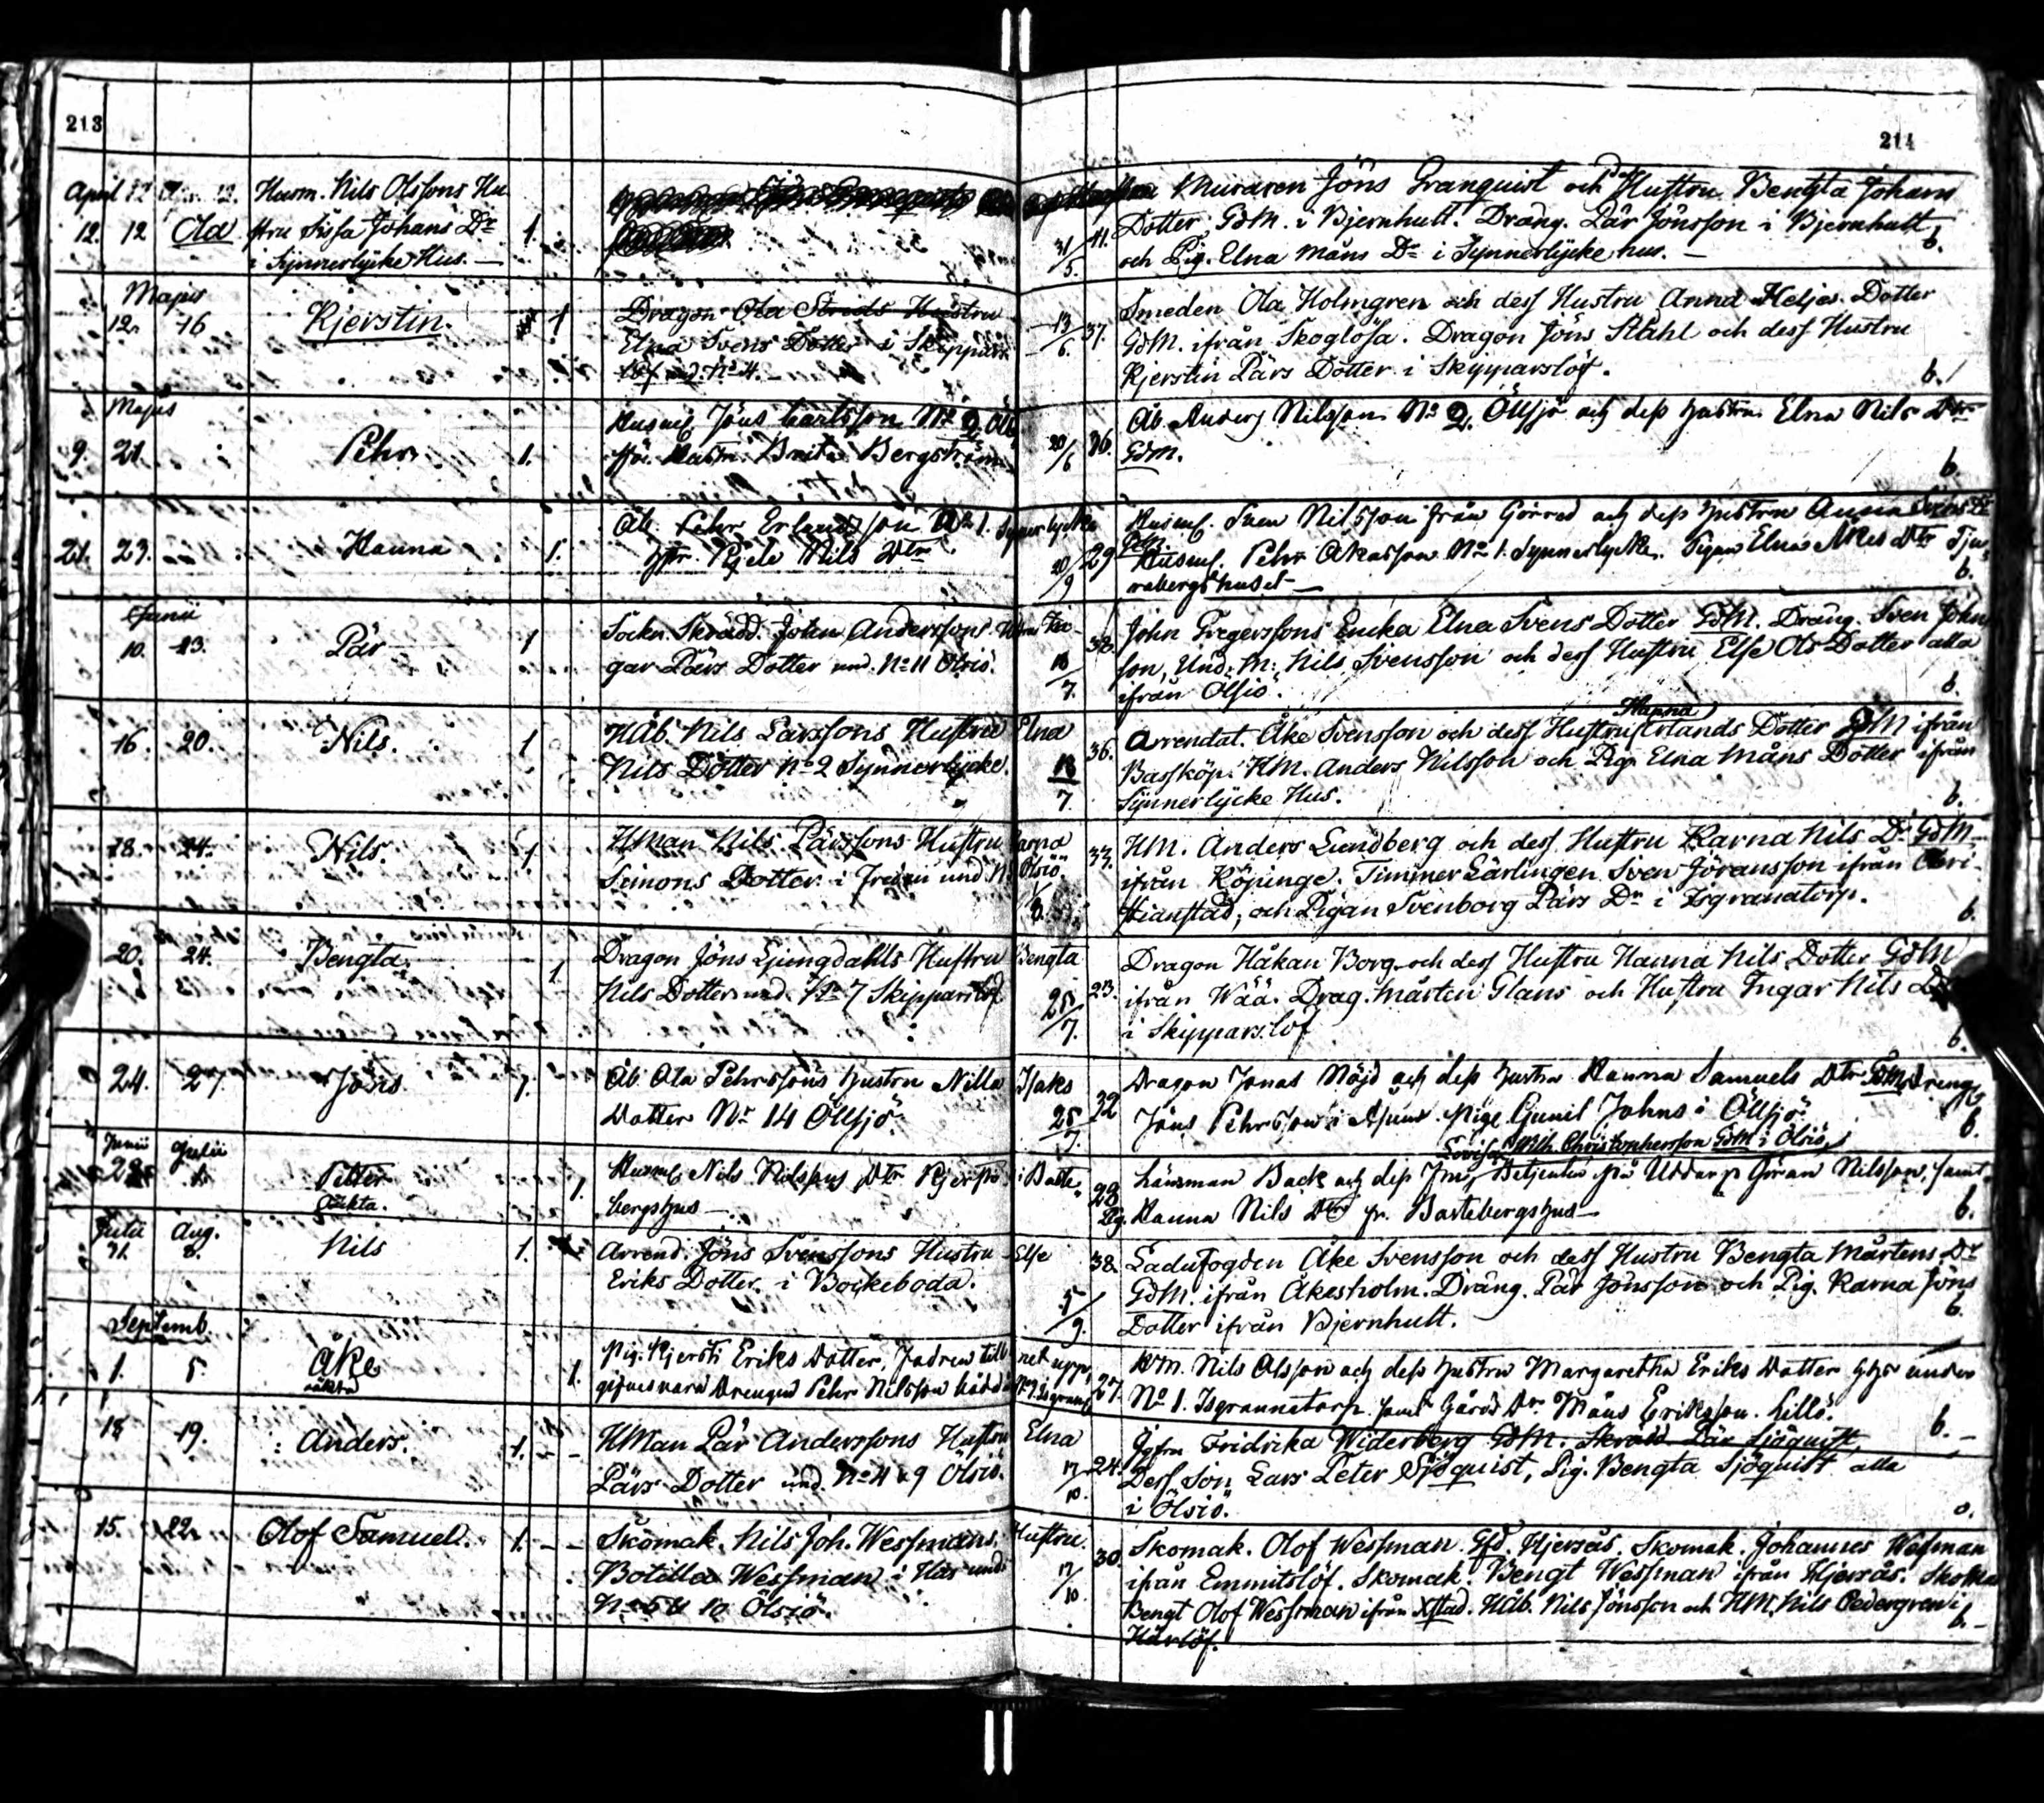 213
214
April
12. 12 Ola
Husm. Nils Olssons Hu
stru Sissa Johans Dr
i Synnerlycke Hus. —
1
31/5. 41.
Muraren Jöns Granquist och Hustru Bengta Johans
Dotter GdM. i Bjernhult. Dräng. Pär Jönsson i Bjernhult
och Pig. Elna Måns Dr i Synnerlycke hus. —
b.
Majus
12. 16 Kjerstin. 1
Dragon Ola Strids Hustru
Elna Svens Dotter i Skippars
löf und. No 4. —
13/6. 37.
Smeden Ola Holmgren och dess Hustru Anna Heljes Dotter
GdM. ifrån Skoglösa. Dragon Jöns Ståhl och dess Hustru
Kjerstin Pärs Dotter i Skipparslöf.
b.
Majus
9. 21. Pehr 1.
Husm. Jöns Carlsson No 2 Öll
sjö. Hustru Brita Bergström
20/6 36.
Åb Anders Nilsson No 2. Öllsjö och dess hustru Elna Nils Dtr
GdM.
b.
21. 23. Hanna 1.
Åb. Pehr Erlandsson No 1. Synnerlycke
hstr. Kjele Nils Dtr
20/9 29
Husm. Sven Nilsson från Görred och dess hustru Anna Svens Dr
GdM.
Husm. Pehr Åkasson No 1. Synnerlycke. Pigan Elna Åkes Dtr Tju
rabergshuset —
b.
Junii
10. 13. Pär 1
Sockn. Skrädd. John Anderssons Hstru In
gar Pärs Dotter und. No 11 Ölsiö.
18/7. 38.
John Gregerssons Enka Elna Svens Dotter GdM. Dräng. Sven John
son, Und. M. Nils Svensson och dess Hustru Else Ols Dotter alla
ifrån Ölsiö.
b.
16. 20. Nils. 1
HÅb. Nils Larssons Hustru Elna
Nils Dotter No 2 Synnerlycke.
18/7 36.
Hanna
Arrendat. Åke Svensson och dess Hustru Erlands Dotter GdM ifrån
Bassköp. HM. Anders Nilsson och Pig. Elna Måns Dotter ifrån
Synnerlycke Hus.
b.
18. 24. Nils. 1
HMan Nils Pärssons Hustru Karna
Simons Dotter i und No Ölsiö.
1/8. 33.
HM. Anders Lundberg och dess Hustru Karna Nils Dr GdM
ifrån Köpinge. Timmer Lärlingen Sven Jöransson ifrån Chri
stianstad, och Pigan Svenborg Pärs Dr i Isgranatorp.
b.
20. 24. Bengta. 1
Dragon Jöns Ljungdahls Hustru Bengta
Nils Dotter und. No 7 Skipparslöf
25/7. 23.
Dragon Håkan Borg och dess Hustru Hanna Nils Dotter GdM
ifrån Wää. Drag. Mårten Glans och Hustru Ingar Nils Dr
i Skipparslöf
b.
24. 27 Jöns 1.
Åb Ola Pehrssons hustru Nilla Isaks
Dotter No 14 Öllsjö.
25/7. 32
Dragon Jonas Nöjd och dess hustru Hanna Samuels Dtr GdM, Dreng
Jöns Pehrsson i Pige Gunil Johns i Öllsjö.
b.
Junii Julii
28. Petter
oäkta. 1.
Husm. Nils Nilssons Dtr Kjersti i Barte
bergshus —
28
Lovisa Wilh. Christophersson GdM i Ölsiö
Länsman Back och dess Fru, Betjenten på Uddarp Göran Nilsson, samt
Pig. Hanna Nils Dtr fr. Bartebergshus —
b.
Julii Aug.
31. 2. Nils 1.
Arrend. Jöns Svenssons Hustru Else
Eriks Dotter i Bockeboda.
5/9. 38.
Ladufogden Åke Svensson och dess Hustru Bengta Mårtens Dr
GdM. ifrån Åkesholm. Dräng. Pär Jönsson och Pig. Karna Jöns
Dotter ifrån Bjernhult.
b.
Septemb.
1. 5. Åke
oäkta 1.
Pig. Kjersti Eriks Dotter, Fadren till barnet upp
gifves vara Drengen Pehr Nilsson No 1. Isgranat
27.
HM. Nils Olsson och dess hustru Margaretha Eriks Dotter Ghs under
No 1. Isgrannatorp samt Gårds Dr Måns Eriksson Lillö.
b. —
18 19. Anders. 1. — —
HMan Pär Anderssons Hustru Elna
Pärs Dotter und. No 4 & 9 Ölsiö.
17/10. 24.
Jgfru Fridrika Widerberg GdM. Skrädd Pär Sjöquist,
Dess Son Lars Peter Sjöquist, Pig. Bengta Sjöquist alla
i Ölsiö.
b.
15. 22. Olof Samuel. 1. — —
Skomak. Nils Joh. Wessmans Hustru
Botilla Wessman i Hus und
No 5 & 10 Ölsiö.
17/10 30.
Skomak. Olof Wessman Gfd. Hjersås. Skomak. Johannes Wessman
ifrån Emmitslöf. Skomak. Bengt Wessman ifrån Hjersås. Skomak
Bengt Olof Wessman ifrån Xstad. HÅb. Nils Jönsson och HM. Nils Cedergren i
Härlöf.
b. —